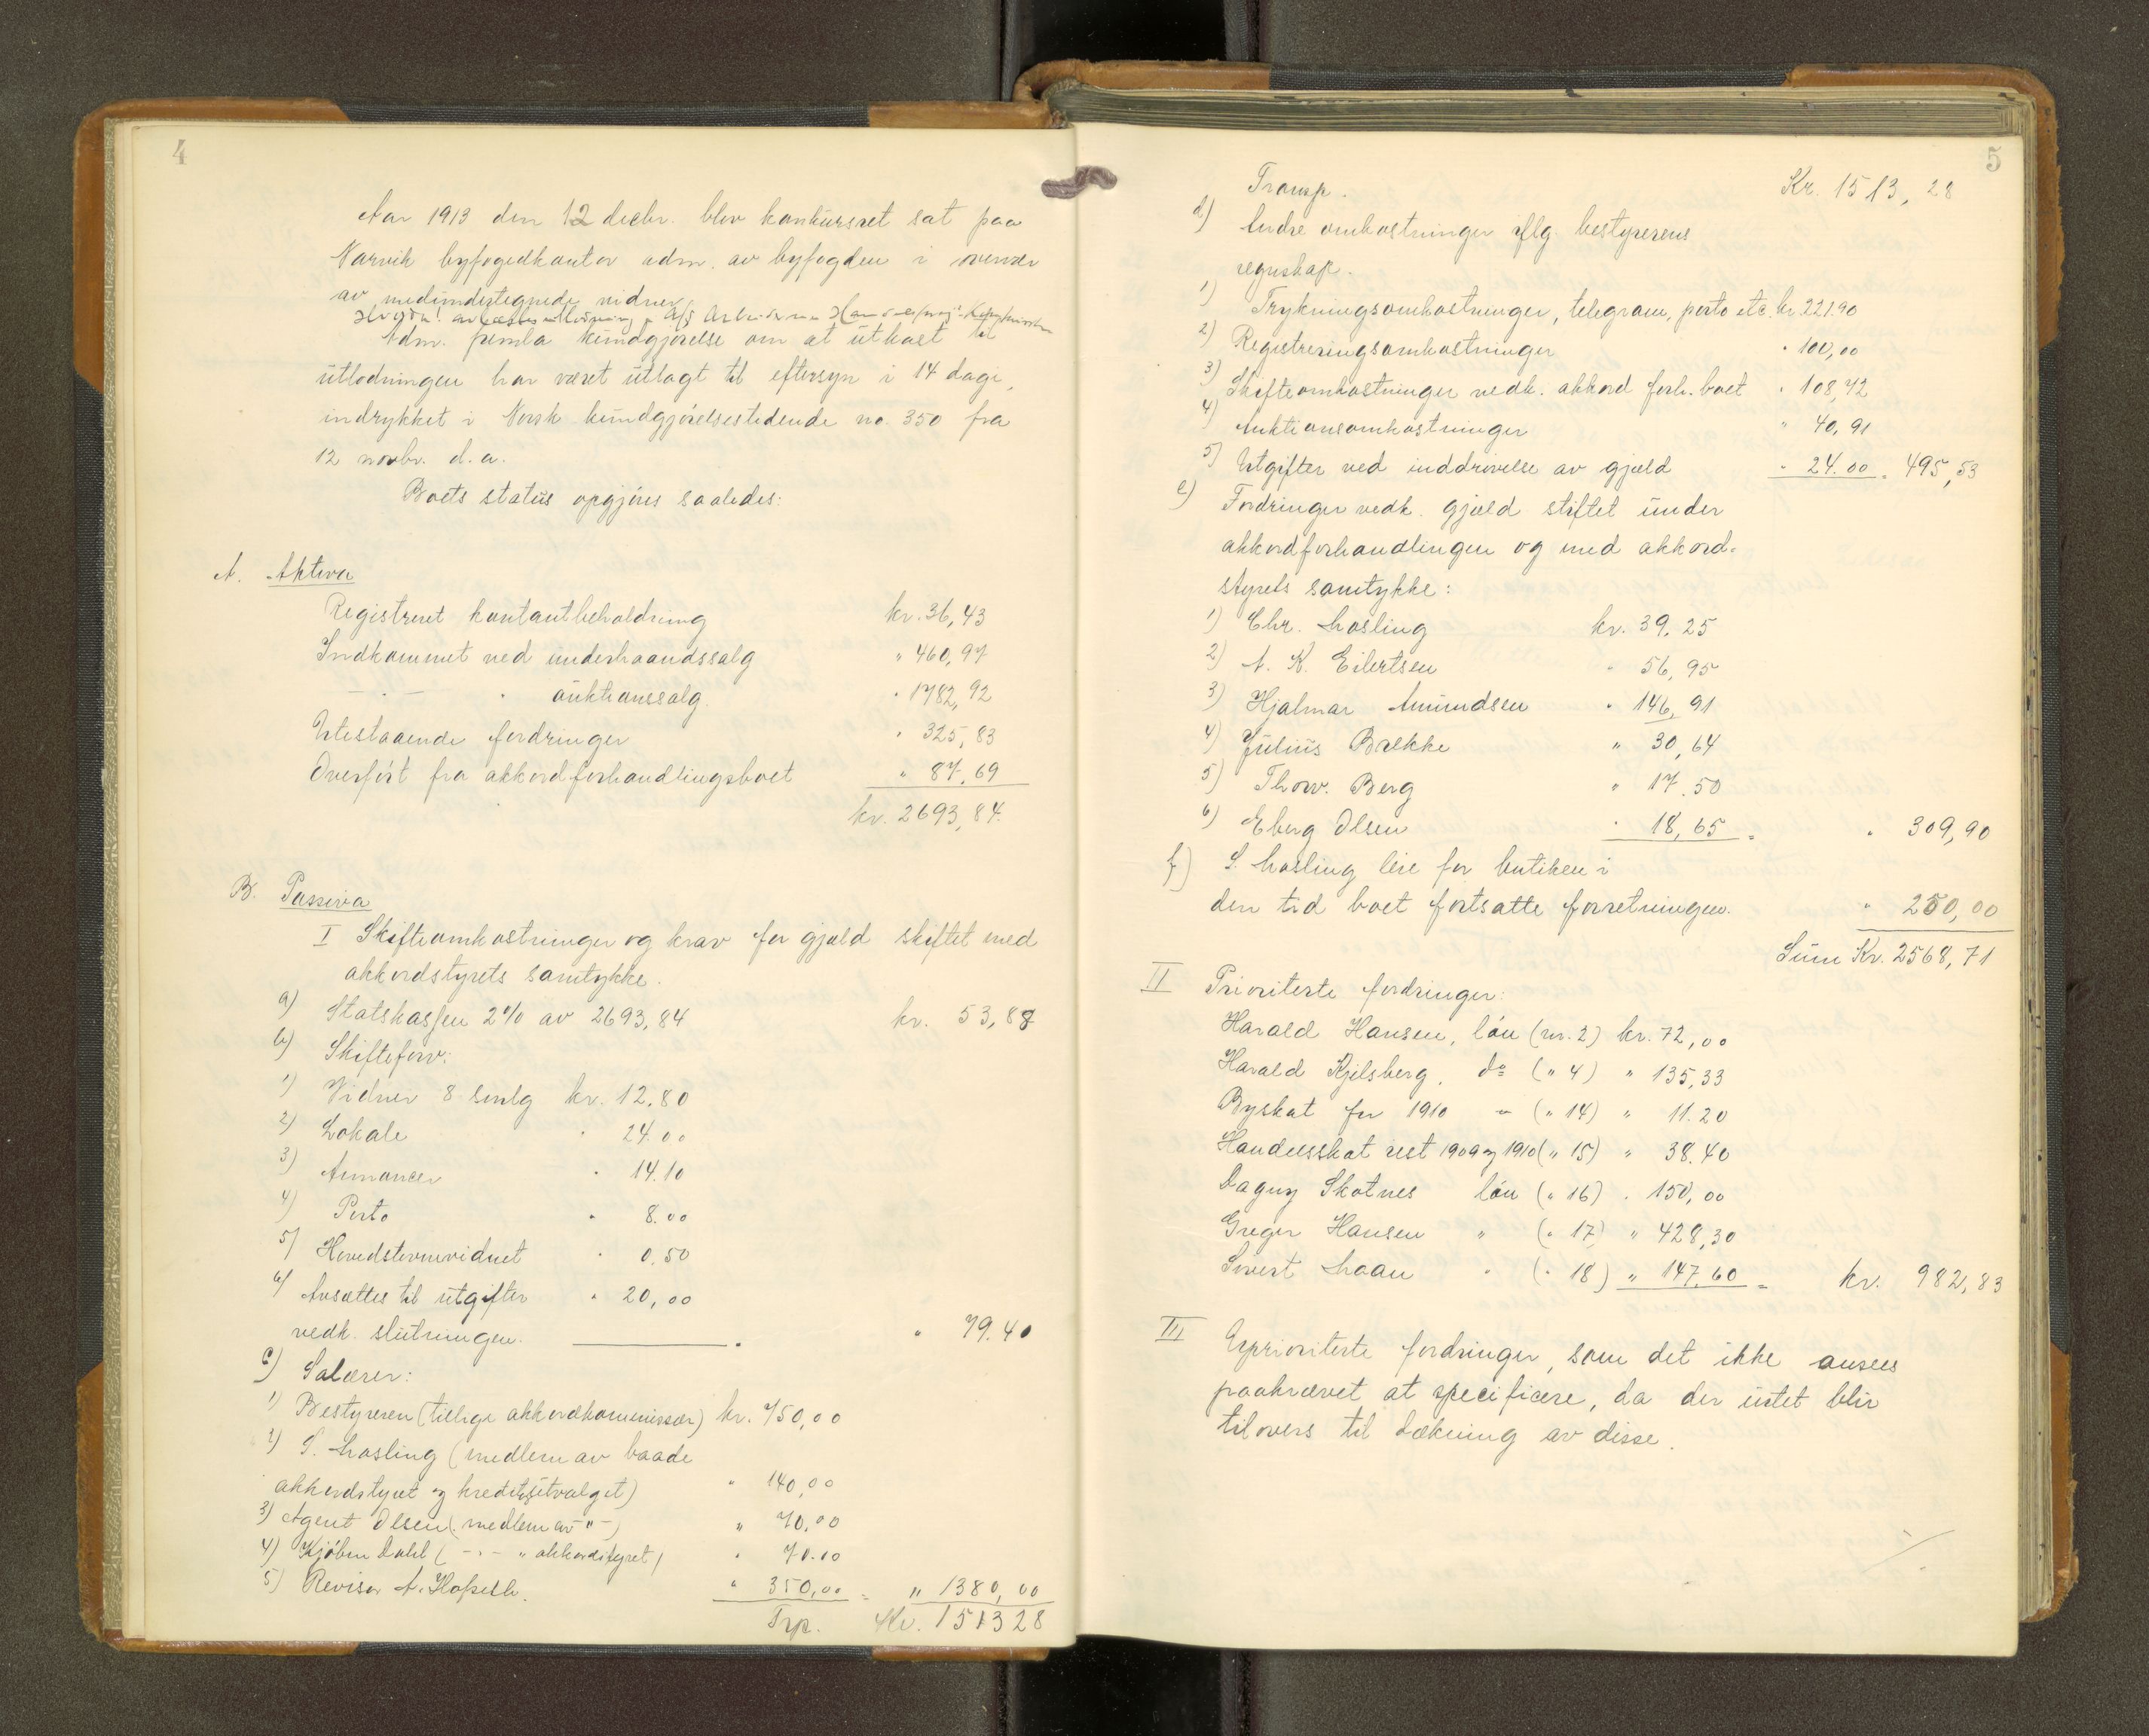 4
Aar 1913 den 12 decbr. blev konkursret sat paa
Narvik byfogedkontor adm. av byfogden i overvær
av medundertegnede vidner.
Hvorda! avsattes utlodning i A/S Arbeidernes
Adm. fremla kundgjørelse om at utkast til
utlodningen har været utlagt til eftersyn i 14 dage,
indrykket i Norsk kundgjørelsestidende no. 350 fra
12 novbr. d.a.
Boets status opgjøres saaledes:
A. Aktiva
Registreret kontantbeholdning kr. 36,43
Indkommet ved underhaandssalg " 460,97
— " — " auktionssalg " 1782,92
Utestaaende fordringer " 325,83
Overført fra akkordforhandlingsboet " 87,69
kr. 2693,84.
B. Passiva
I Skifteomkostninger og krav for gjæld skiftet med
akkordstyrets samtykke.
a) Statskassen 2% av 2693,84 kr. 53,88
b) Skifteforv:
1) Vidner 8 smlg kr. 12.80
2) Lokale " 24.00
3) Annoncer " 14.10
4) Porto " 8.00
5) Hovedstevnevidnet " 0.50
6) Avsættes til utgifter " 20,00
vedk. slutningen. " 79.40
c) Salærer:
1) Bestyreren (tillige akkordkommissær) kr. 750,00
2) S. Mosling (medlem av baade
akkordstyret og kreditutvalget) " 140,00
3) Agent Olsen (medlem av -"-) " 70,00
4) Kjøbm Dahl ( - " - " akkordstyret) " 70.00
5) Revisor A. Hofseth. " 350,00 = " 1380,00
Trp. Kr. 1513 28
5
Transp. Kr. 1513,28
d) Andre omkostninger iflg. bestyrerens
regnskap.
1) Trykningsomkostninger, telegram, porto etc. kr. 221.90
2) Registreringsomkostninger " 100,00
3) Skifteomkostninger vedk. akkord forh. boet " 108,72
4) Auktionsomkostninger " 40,91
5) Utgifter ved inddrivelse av gjæld " 24.00 = 495,53
e) Fordringer vedk. gjæld stiftet under
akkordforhandlingen og med akkord-
styrets samtykke:
1) Chr. Mosling kr. 39.25
2) A. K. Eilertsen " 56,95
3) Hjalmar Amundsen " 146,91
4) Julius Brække " 30,64
5) Thorv. Berg " 17.50
6) Eberg Olsen " 18,65 = " 309,90
f) S. Mosling leie for butiken i
den tid boet fortsatte forretningen. " 250,00
Sum Kr. 2568,71
II Prioriterte fordringer:
Harald Hansen, løn (nr. 2) kr. 72,00
Harald Kjelsberg. do (" 4) " 135,33
Byskat for 1910 — (" 14) " 11.20
Handelsskat rest 1909 og 1910 (" 15) " 38.40
Dagny Skotnes løn (" 16) " 150,00
Greger Hansen " (" 17) " 428,30
Sivert Moan " (" 18) " 147,60 = kr. 982,83
III Uprioriterte fordringer, som det ikke ansees
paakrævet at specificere, da der intet blir
tilovers til dækning av disse.